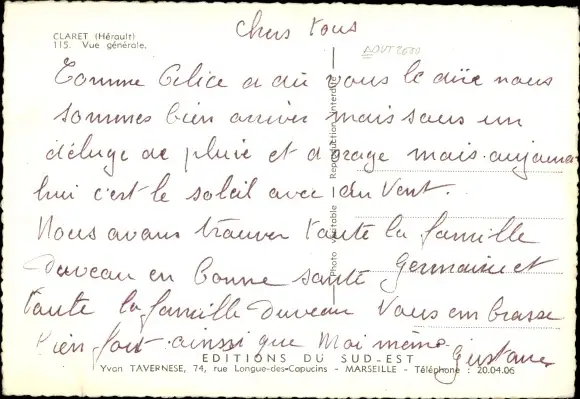 Chers tous
CLARET (Hérault)
115. Vue générale.
AOUT
Comme Celice a dû vous le dire nous
sommes bien arriver mais sous un
déluge de pluie et d'orage mais aujour
hui c'est le soleil avec du vent.
Nous avons trouver toute la famille
Duveau en bonne santé Germaine et
toute la famille Duveau Vous embrasse
bien fort ainsi que moi même
Gustave
Photo véritable - Reproduction interdite
EDITIONS DU SUD-EST
Yvan TAVERNESE, 74, rue Longue-des-Capucins - MARSEILLE - Téléphone : 20.04.06